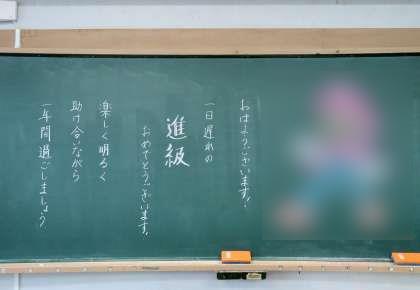 おはようございます!
一日遅れの
進級
おめでとうございます。
楽しく明るく
助け合いながら
一年間過ごしましょう